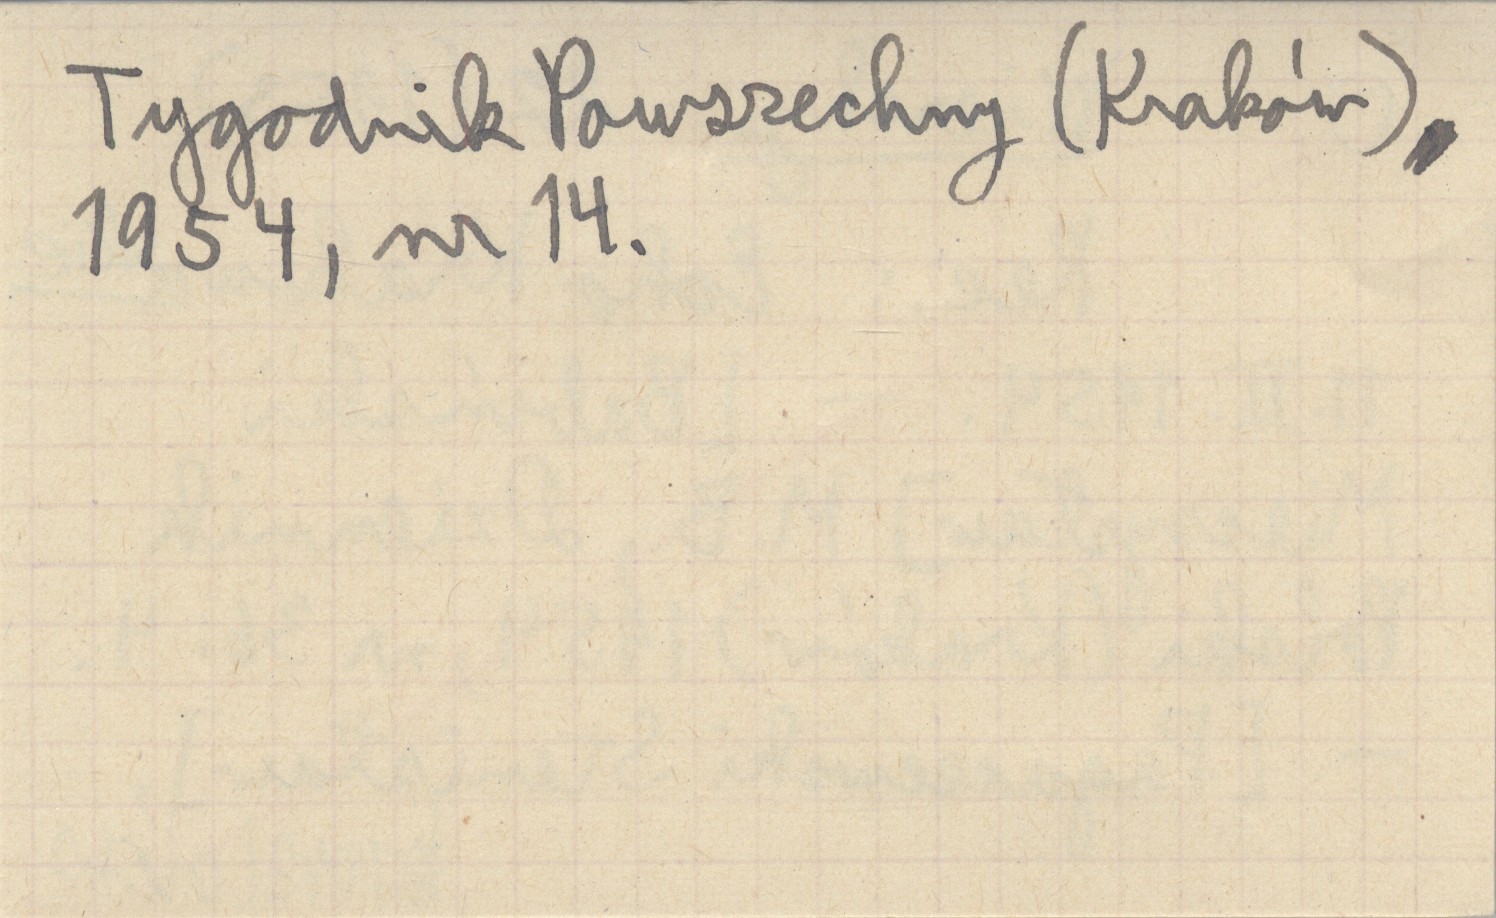 Tygodnik Powszechny (Kraków),
1954, nr 14.